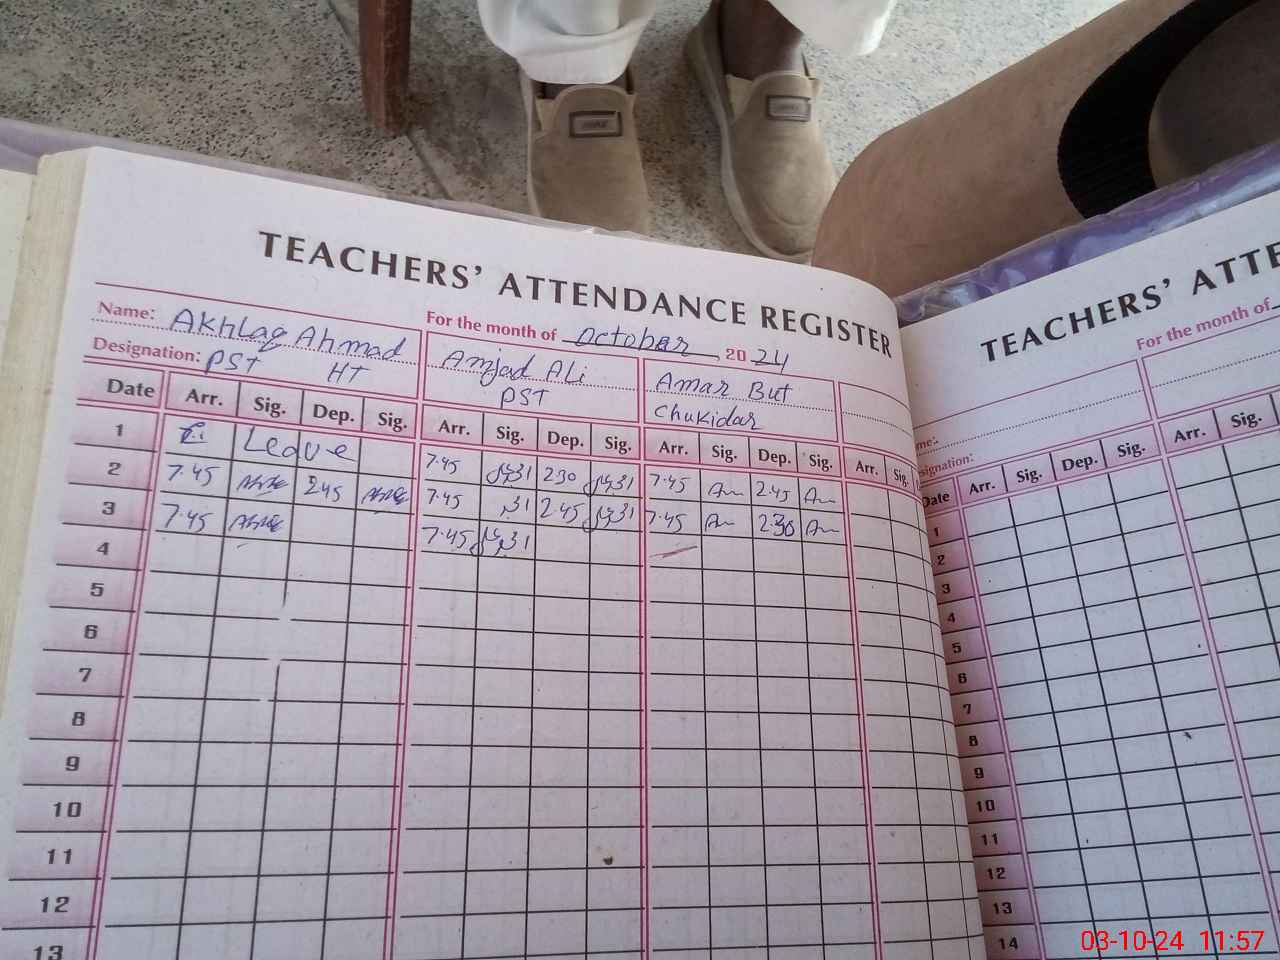 TEACHERS' ATTENDANCE REGISTER
Name: Akhlaq Ahmad
For the month of October 2024
Designation: PST HT
Amjad Ali
PST
Amar But
Chukidar
Date Arr. Sig. Dep. Sig. Arr. Sig. Dep. Sig. Arr. Sig. Dep. Sig. Arr. Sig.
1 Leave 7.45 2.30 7.45 2.45
2 7.45 2.45 7.45 2.45 7.45 2.30
3 7.45 7.45
4
5
6
7
8
9
10
11
12
13
TEACHERS' ATTE
For the month of
me:
signation:
Date Arr. Sig. Dep. Sig. Arr. Sig.
1
2
3
4
5
6
7
8
9
10
11
12
13
14
03-10-24 11:57